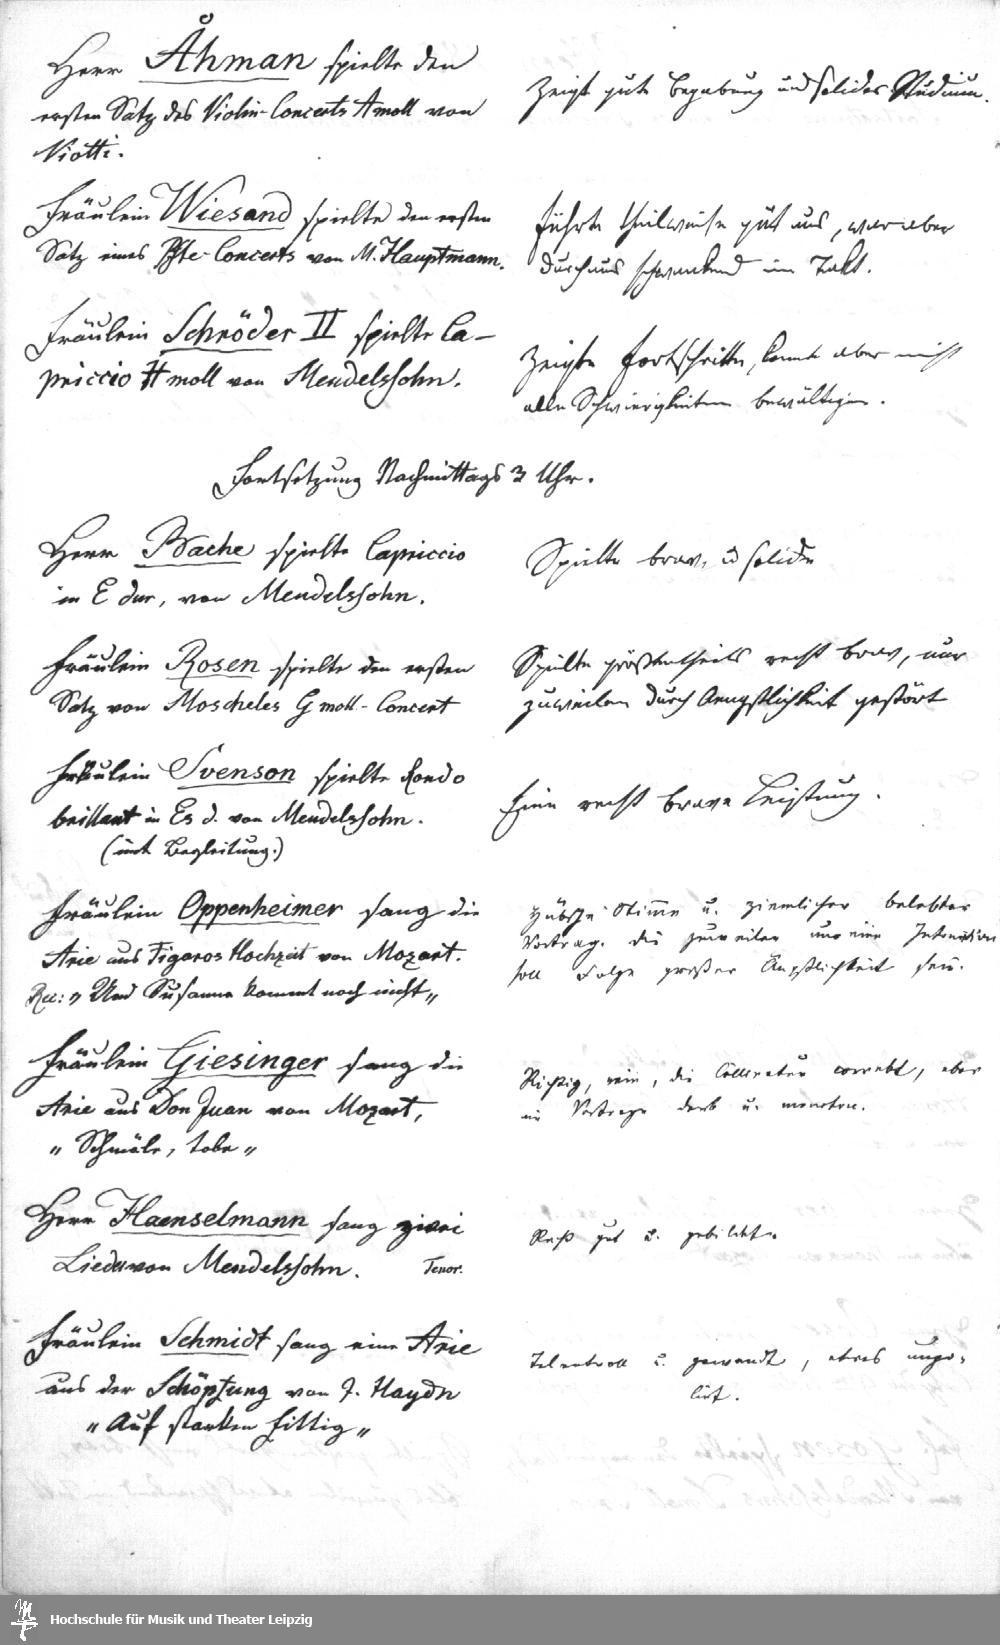 Herr Åhman spielte den
ersten Satz des Violin-Concerts A moll von
Viotti.
Zeigt gute Begabung und solides Studium.
Fräulein Wiesand spielte den ersten
Satz eines Pfte-Concerts von M. Hauptmann.
führte theilweise gut aus, war aber
durchaus schwankend im Takt.
Fräulein Schröder II spielte Ca-
priccio H moll von Mendelssohn.
Zeigte Fortschritte, konnte aber nicht
alle Schwierigkeiten bewältigen.
Fortsetzung Nachmittags 3 Uhr.
Herr Bache spielte Capriccio
in E dur, von Mendelssohn.
Spielte brav, u solide
Fräulein Rosen spielte den ersten
Satz von Moscheles G moll-Concert
Spielte größtentheils recht brav, nur
zuweilen durch Aengstlichkeit gestört
Fräulein Svenson spielte Rondo
brillant in Es d. von Mendelssohn.
(mit Begleitung.)
Eine recht brave Leistung.
Fräulein Oppenheimer sang die
Arie aus Figaros Hochzeit von Mozart.
Rec: „ Und Susanna kommt noch nicht „
Hübsche Stimme u. ziemlicher belebter
Vortrag. die zuweilen Intonation
soll Folge großer Ängstlichkeit sein.
Fräulein Giesinger sang die
Arie aus Don Juan von Mozart,
„ Schmäle, tobe „
Richtig, rein, die correkt, aber
im Vortrage derb u. monoton.
Herr Haenselmann sang zwei
Lieder von Mendelssohn. Tenor.
Recht gut u. gebildet.
Fräulein Schmidt sang eine Arie
aus der Schöpfung von J. Haydn
„ Auf starken Fittig „
Talentvoll u. gewandt, etwas
Hochschule für Musik und Theater Leipzig